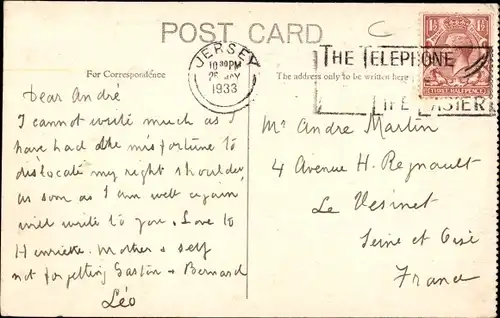 POST CARD
C
JERSEY
10 30PM
26 MY
1933
THE TELEPHONE
THE EASIER
1½ 1½
THREE HALFPENCE
For Correspondence
The address only to be written here
Dear André
I cannot write much as I
have had the misfortune to
dislocate my right shoulder,
as soon as I am well again
will write to you. Love to
Henriette. Mother & self
not forgetting Gaston & Bernard
Léo
Mr Andre Martin
4 Avenue H. Regnault
Le Vesinet
Seine et Oise
France